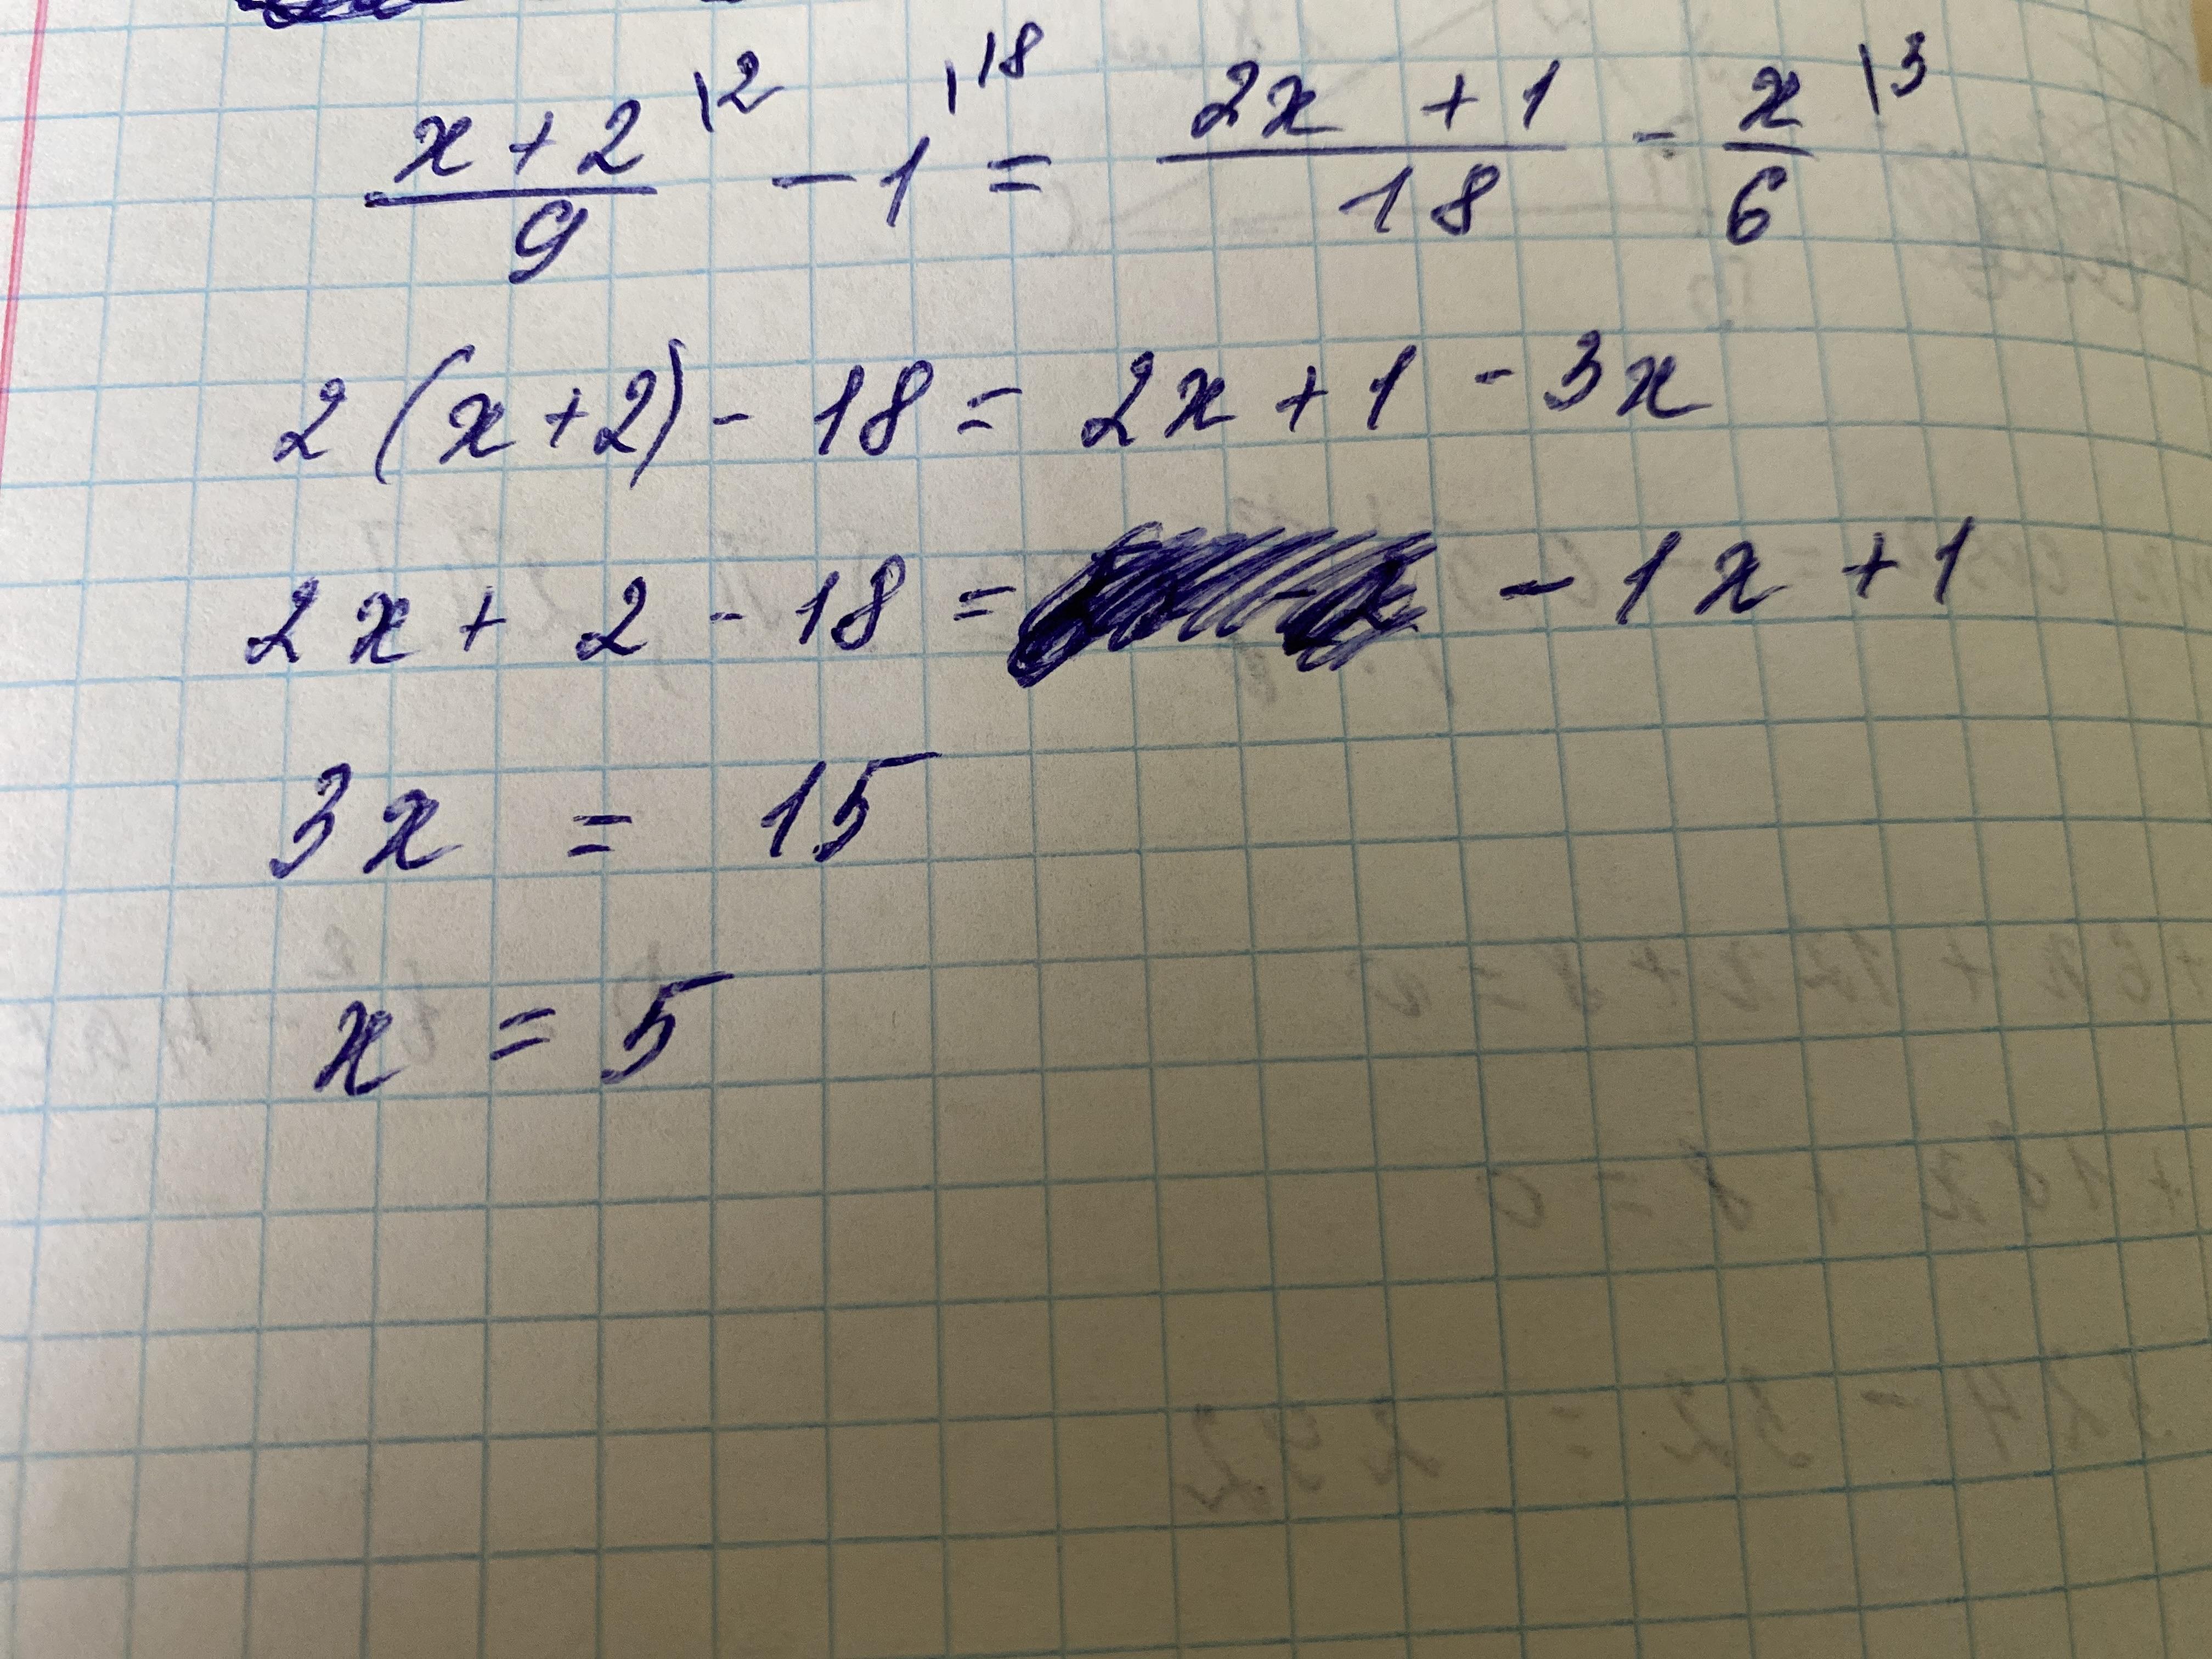 x+2/9 \2 - 1 \18 = 2x + 1/18 - x/6 \3
2(x+2) - 18 = 2x + 1 - 3x
2x + 2 - 18 = - 1x + 1
3x = 15
x = 5